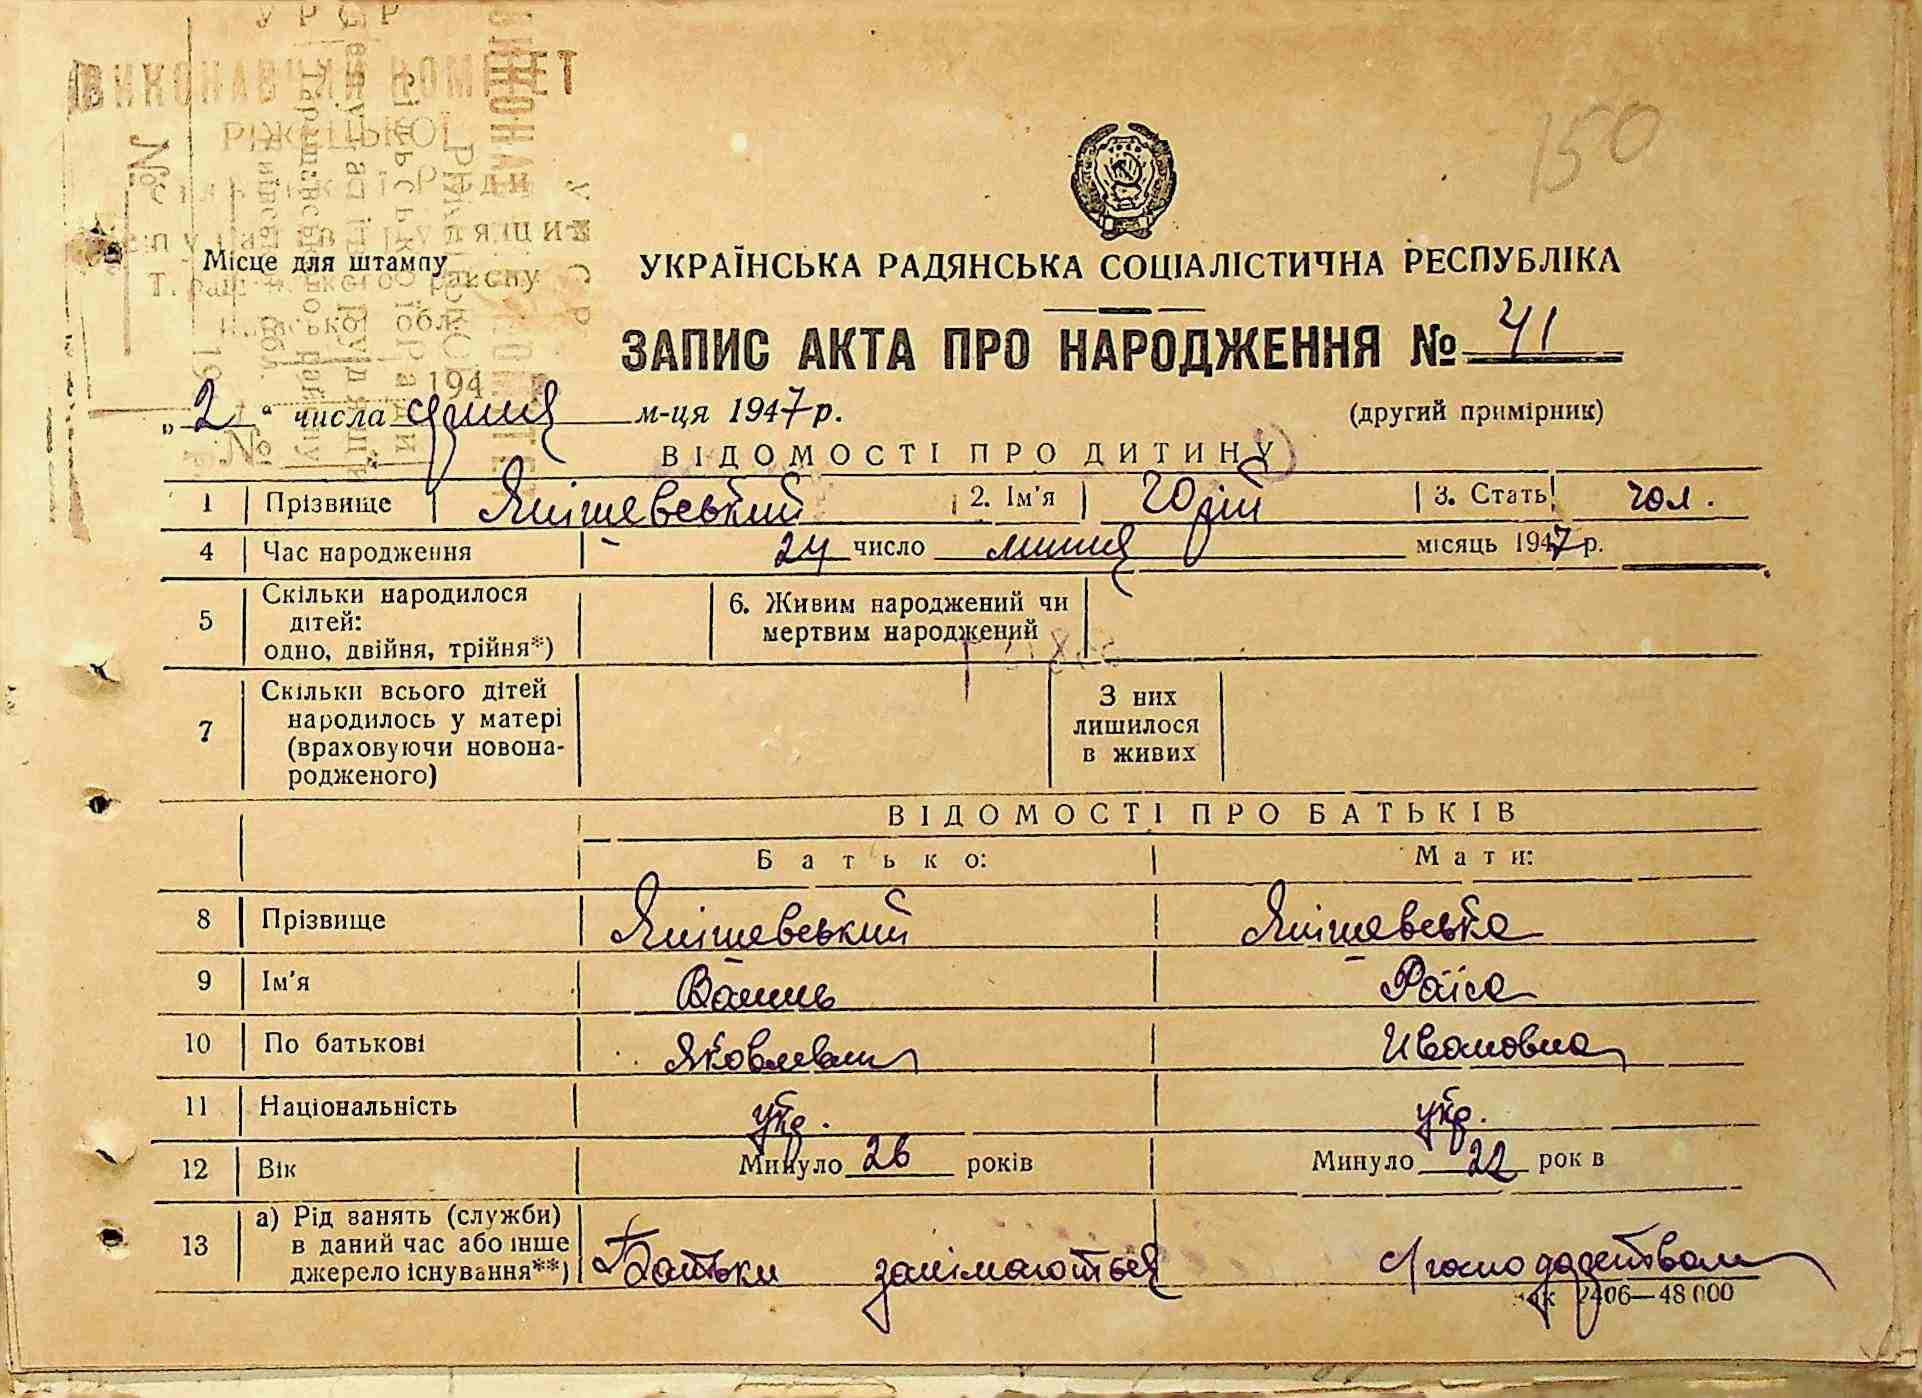 УРСР
ВИКОНАВЧИЙ КОМІТЕТ
РІЖСЬКОЇ
сільської Ради
депутатів трудящих
Таращанського району
Київської обл.
№
194
№
150
Місце для штампу
УКРАЇНСЬКА РАДЯНСЬКА СОЦІАЛІСТИЧНА РЕСПУБЛІКА
ЗАПИС АКТА ПРО НАРОДЖЕННЯ № 41
„2“ числа серпня м-ця 1947 р. (другий примірник)
ВІДОМОСТІ ПРО ДИТИНУ
1 Прізвище Янішевський 2. Ім'я Юрій 3. Стать чол.
4 Час народження 24 число липня місяць 1947 р.
5 Скільки народилося дітей: одно, двійня, трійня*) 6. Живим народжений чи мертвим народжений
7 Скільки всього дітей народилось у матері (враховуючи новонародженого) З них лишилося в живих
ВІДОМОСТІ ПРО БАТЬКІВ
Батько: Мати:
8 Прізвище Янішевський Янішевська
9 Ім'я Василь Раїса
10 По батькові Яковлевич Ивановна
11 Національність укр. укр.
12 Вік Минуло 26 років Минуло 22 рок в
13 а) Рід занять (служби) в даний час або інше джерело існування**) Батьки занімаються с/господарством
2406—48 000